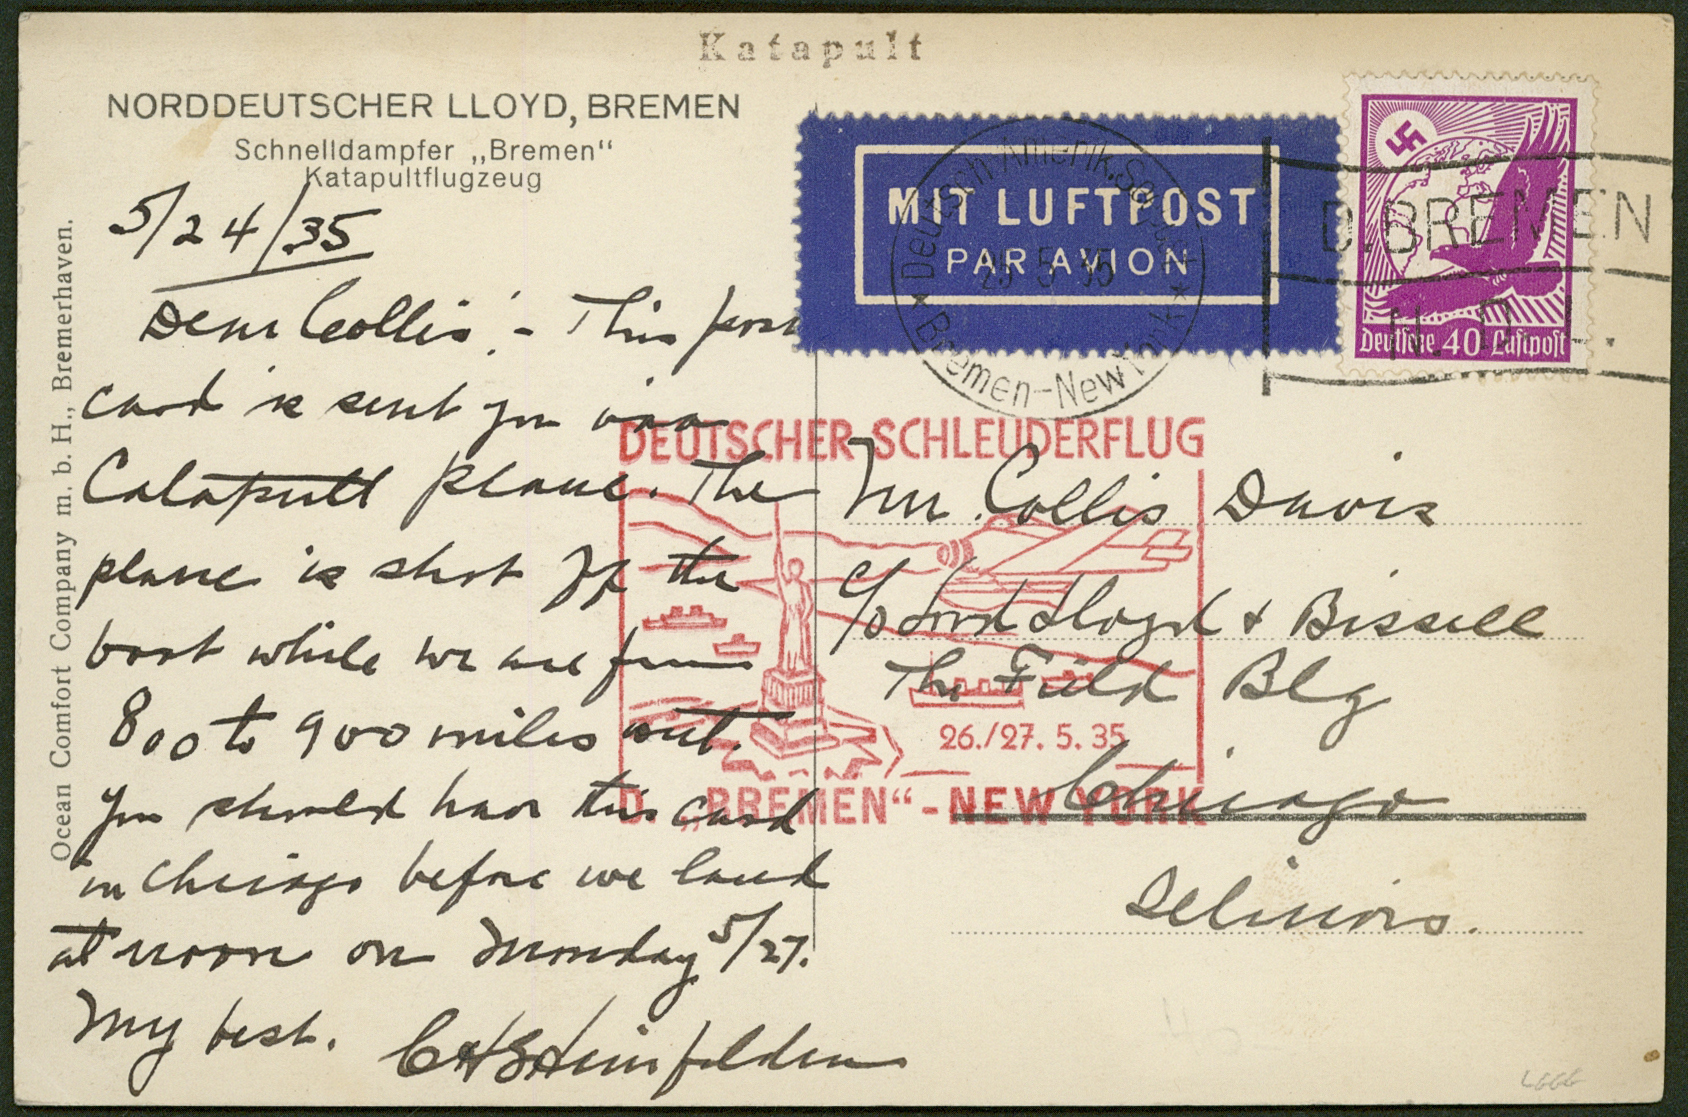 Katapult
NORDDEUTSCHER LLOYD, BREMEN
Schnelldampfer „Bremen“
Katapultflugzeug
Ocean Comfort Company m. b. H., Bremerhaven.
5/24/35
Dear Collis: - This post
card is sent you via
Catapult plane. The
plane is shot off the
boat while we are from
800 to 900 miles out.
You should have this card
in Chicago before we land
at noon on Monday 5/27.
My best.
MIT LUFTPOST
PAR AVION
Deutsch-Amerik. Seepost
25 5 35
Bremen-New York
D. BREMEN
N. D. L.
Deutsche 40 Luftpost
DEUTSCHER SCHLEUDERFLUG
26./27. 5. 35
D. „BREMEN“ - NEW YORK
Mr. Collis Davis
c/o Lord Lloyd & Bissell
The Field Blg
Chicago
Illinois.